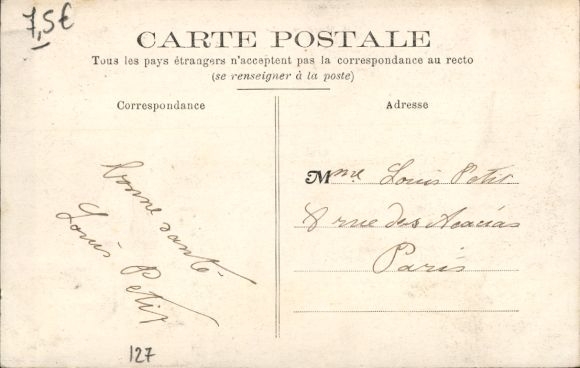 7,5€
CARTE POSTALE
Tous les pays étrangers n'acceptent pas la correspondance au recto
(se renseigner à la poste)
Correspondance
Adresse
Bonne santé
Louis Petit
Mme Louis Petit
8 rue des Acacias
Paris
127